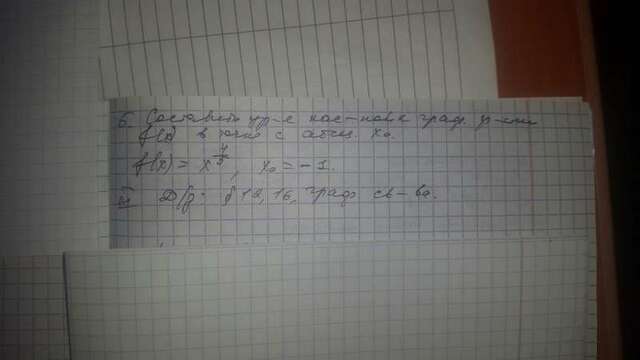 5. Составить ур-е кас-ной к граф. ф-ции
f(x) в точке с абсц. x₀.
f(x) = x , x₀ = -1.
Д/з: § 12, 16, граф. св-ва.